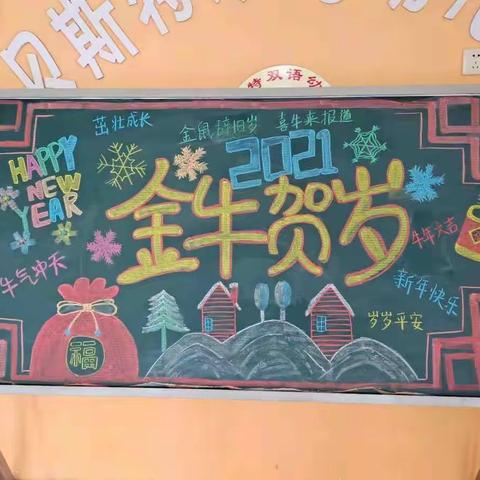 贝斯特
特双语幼
茁壮成长
金鼠辞旧岁 喜牛来报道
HAPPY
NEW
YEAR
2021
金牛贺岁
牛年大吉
牛气冲天
新年快乐
岁岁平安
福